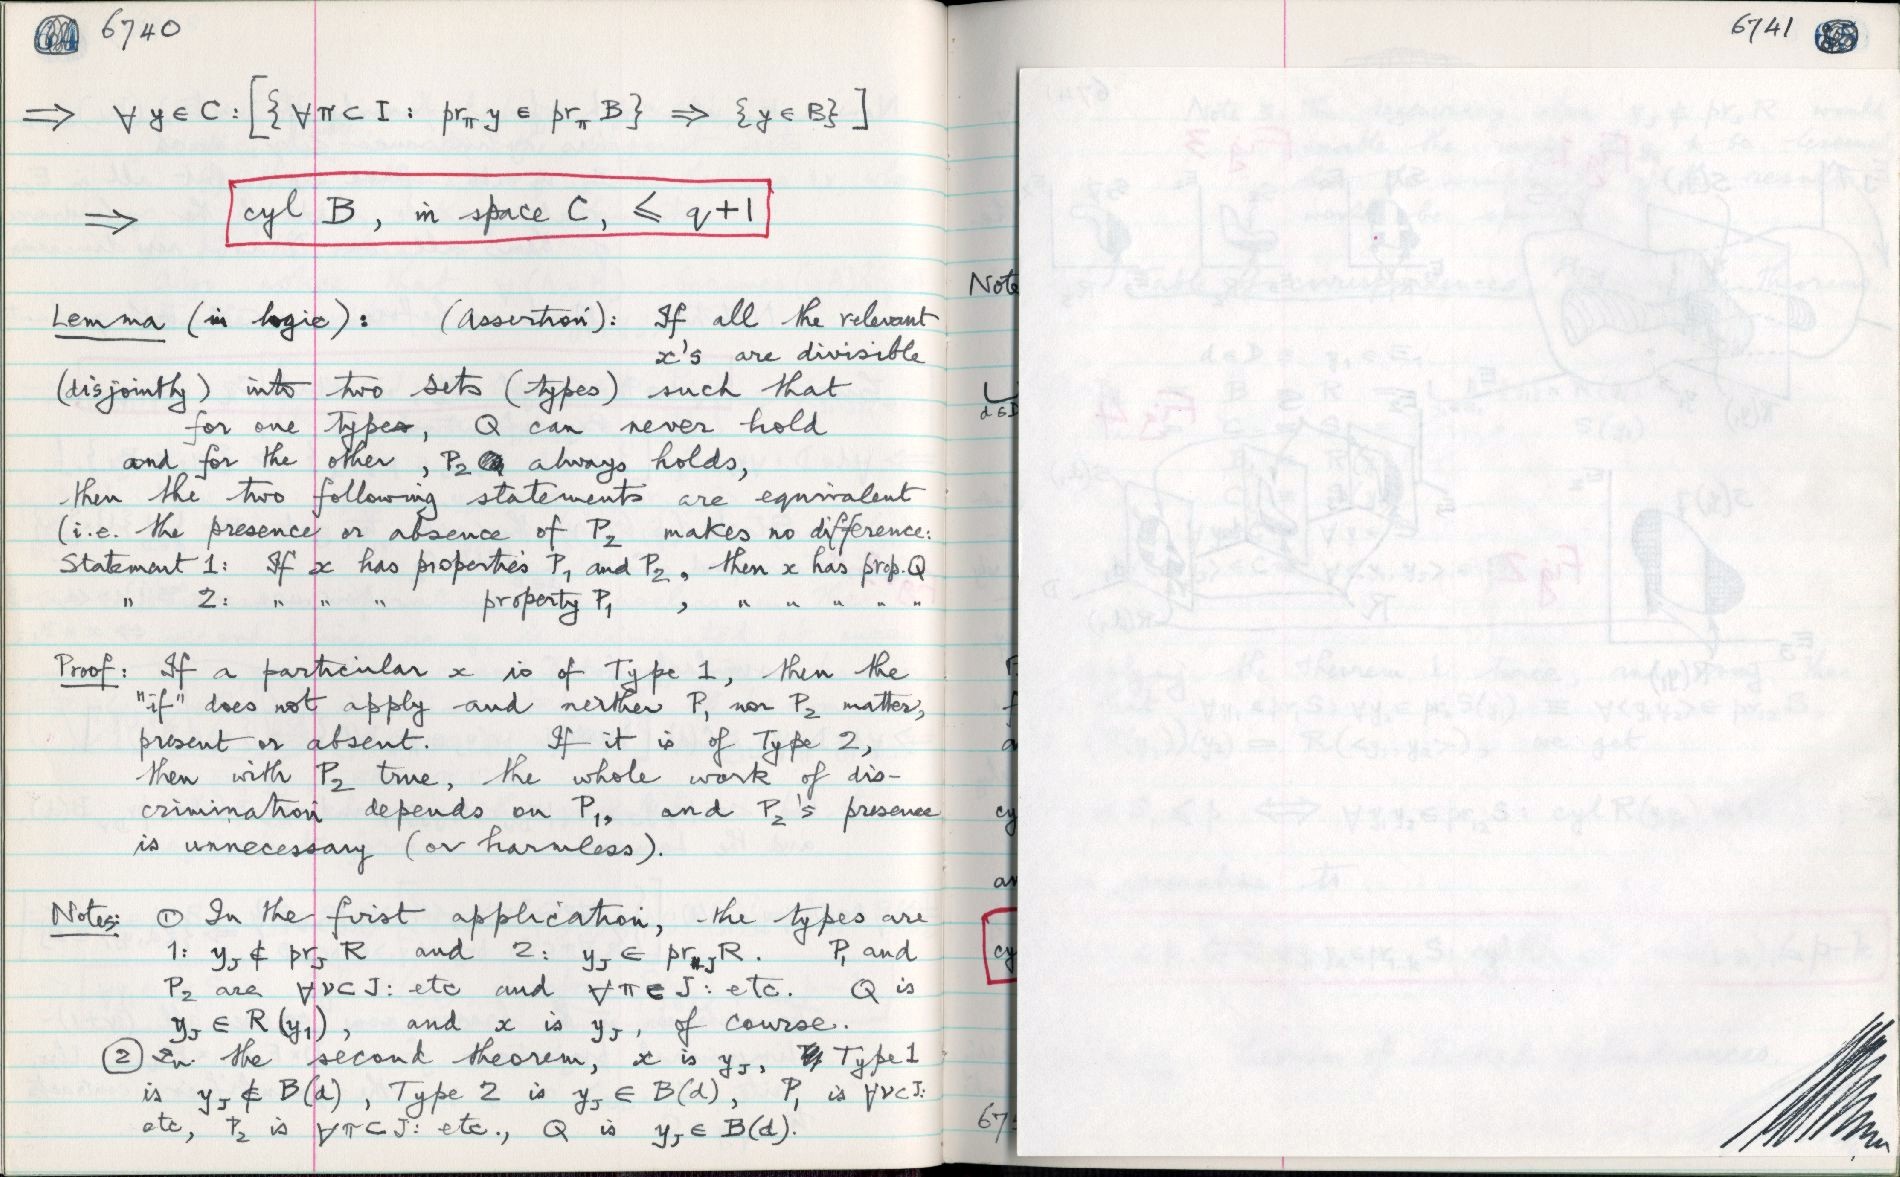 6740
⇒ ∀ y ∈ C : [{∀π⊂I : pr_π y ∈ pr_π B} ⇒ {y ∈ B}]
⇒ cyl B, in space C, ≤ q+1
Lemma (in logic): (Assertion): If all the relevant
x's are divisible
(disjointly) into two sets (types) such that
for one type, Q can never hold
and for the other, P₂ always holds,
then the two following statements are equivalent
(i.e. the presence or absence of P₂ makes no difference:
Statement 1: If x has properties P₁ and P₂, then x has prop. Q
" 2: " " " property P₁ , " " " " "
Proof: If a particular x is of Type 1, then the
"if" does not apply and neither P₁ nor P₂ matter,
present or absent. If it is of Type 2,
then with P₂ true, the whole work of dis-
crimination depends on P₁, and P₂'s presence
is unnecessary (or harmless).
Notes: ① In the first application, the types are
1: y_J ∉ pr_J R and 2: y_J ∈ pr_J R. P₁ and
P₂ are ∀ν⊂J: etc and ∀π∈J: etc. Q is
y_J ∈ R(y₁), and x is y_J, of course.
② In the second theorem, x is y_J, Type 1
is y_J ∉ B(d), Type 2 is y_J ∈ B(d), P₁ is ∀ν⊂J:
etc, P₂ is ∀π⊂J: etc., Q is y_J ∈ B(d).
6741
Note
d∈D
cy
an
cy
67